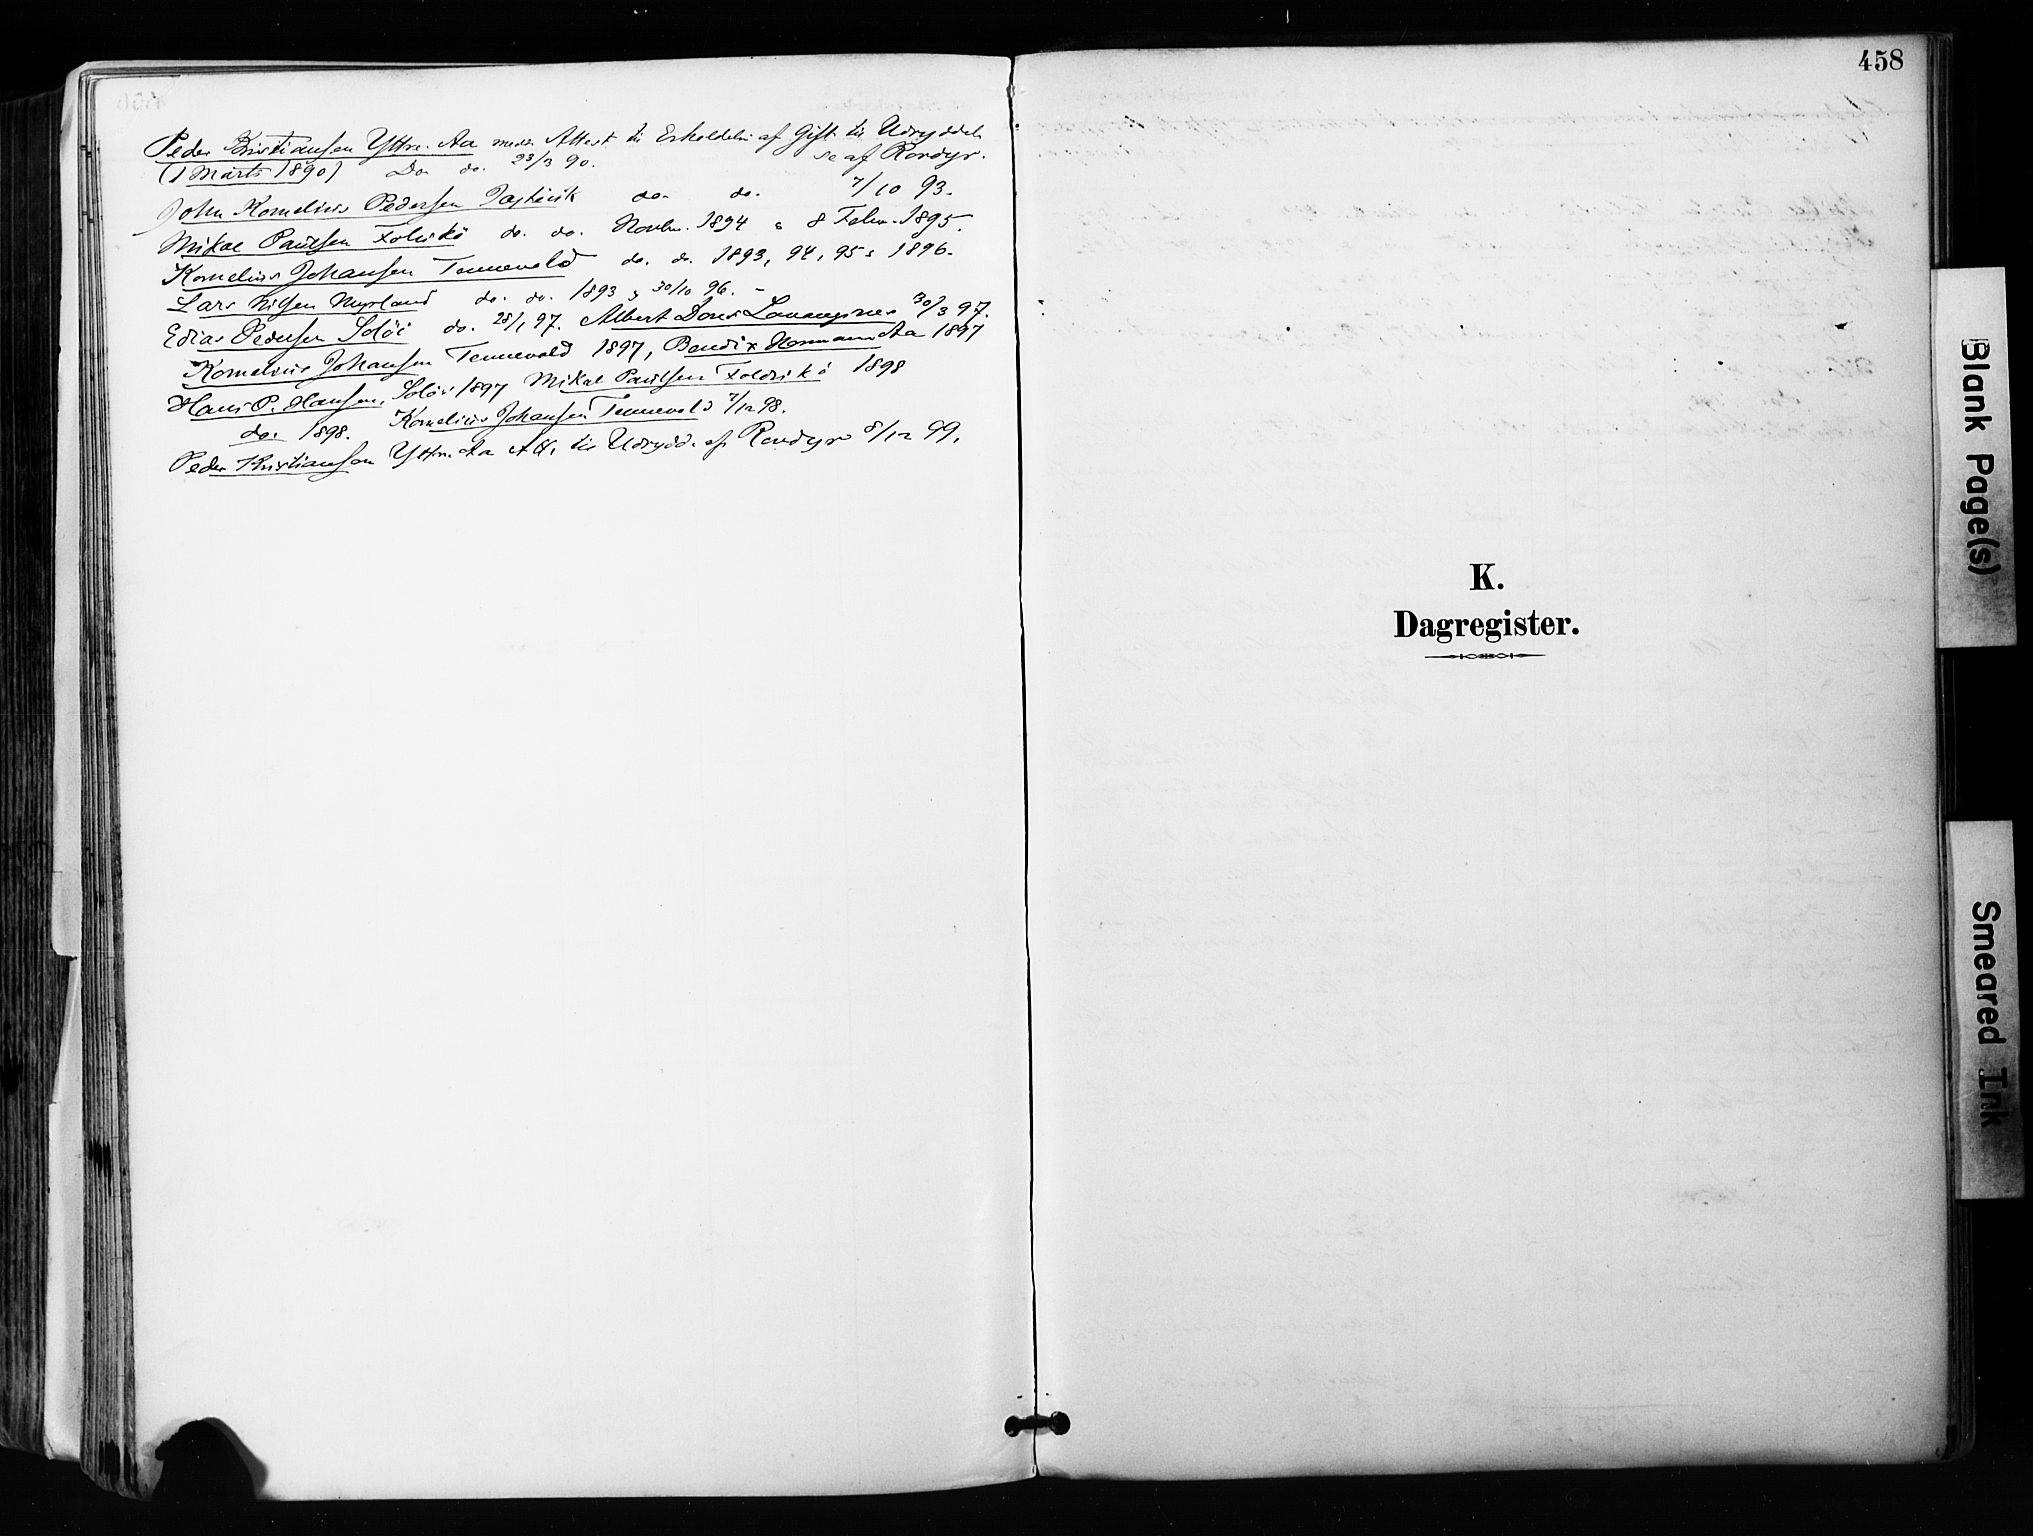 Peder Kristiansen Yttre. Aa meddt Attest til Erholdelse af Gift til Udryddel
se af Rovdyr.
(1 Marts 1890) Do do. 23/3 90.
John Kornelius Pedersen do. do. 7/10 93.
Mikal Paulsen Foldvik do. do. Novbr. 1894 & 8 Febr. 1895.
Kornelius Johansen Tennevold do. do. 1893, 94, 95 & 1896.
Lars Nilsen Myrland do. do. 1893 & 30/10 96. -
Edias Pedersen Soløi do. 28/1 97. Albert Dons Lavangsnes 30/3 97.
Kornelius Johansen Tennevold 1897, Bendix Hermann Aa 1897
Hans P. Hansen, Soløi 1897 Mikal Paulsen Foldvik 1898
do. 1898. Kornelius Johansen Tennevold 7/12 98.
Peder Kristiansen Yttre. Aa Att. til Udrydd. af Rovdyr 8/12 99.
458
K.
Dagregister.
Blank Page(s)
Smeared Ink